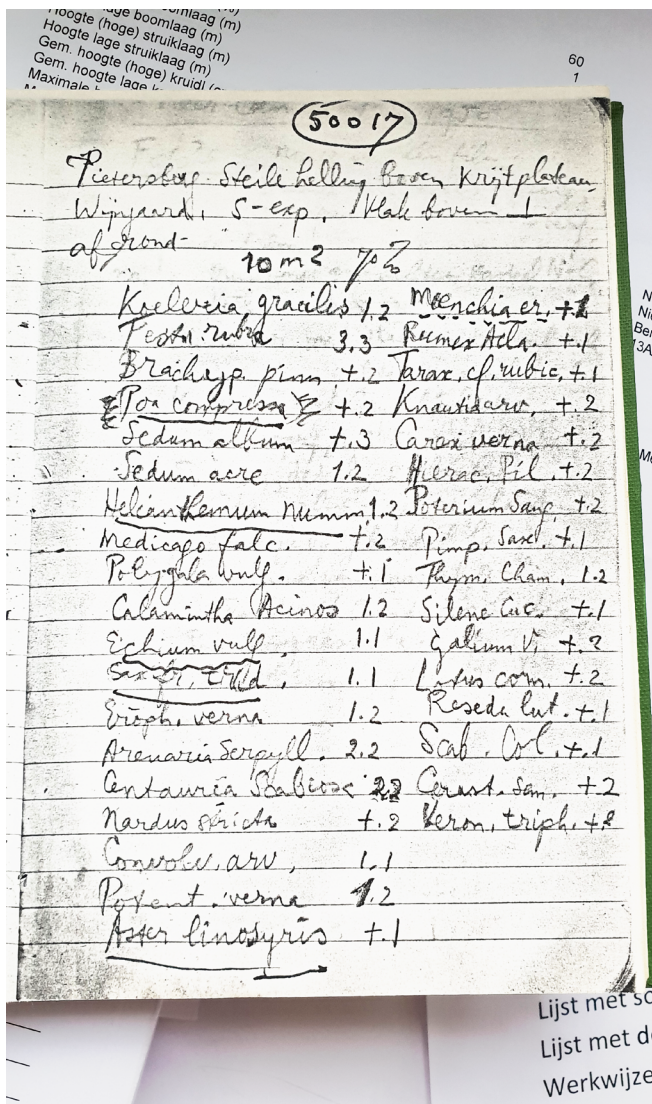 lage boomlaag (m)
Hoogte (hoge) struiklaag (m)
Hoogte lage struiklaag (m)
Gem. hoogte (hoge) kruidl
Gem. hoogte lage
Maximale
60
1
50017
Pietersberg. Steile helling boven Krijtplateau,
Wijngaard, S-exp. Vlak boven
afgrond
10 m2 70%
Koeleria gracilis 1.2
Festu. rubra 3.3
Brachyp. pinn +.2
Poa compressa +.2
Sedum album +.3
Sedum acre 1.2
Helianthemum numm. 1.2
Medicago falc. +.2
Polygala vulg. +.1
Calamintha Acinos 1.2
Echium vulg. 1.1
Saxifr. trid. 1.1
Eroph. verna 1.2
Arenaria Serpyll. 2.2
Centauria Scabiosa 2.2
Nardus stricta +.2
Convolv. arv, 1.1
Potent. verna 1.2
Aster linosyris +.1
Moenchia er. +.1
Rumex Acla. +.1
Tarax. cf. rubic. +.1
Knautia arv. +.2
Carex verna +.2
Hierac. Pil. +.2
Poterium Sang. +.2
Pimp. Saxi. +.1
Thym. Cham. 1.2
Silene Cuc. +.1
Galium V. +.2
Lotus corn. +.2
Reseda lut. +.1
Scab. Col. +.1
Cerast. Sem. +.2
Veron. triph. +.2
N
Ni
Ber
13A
Lijst met
Lijst met d
Werkwijze